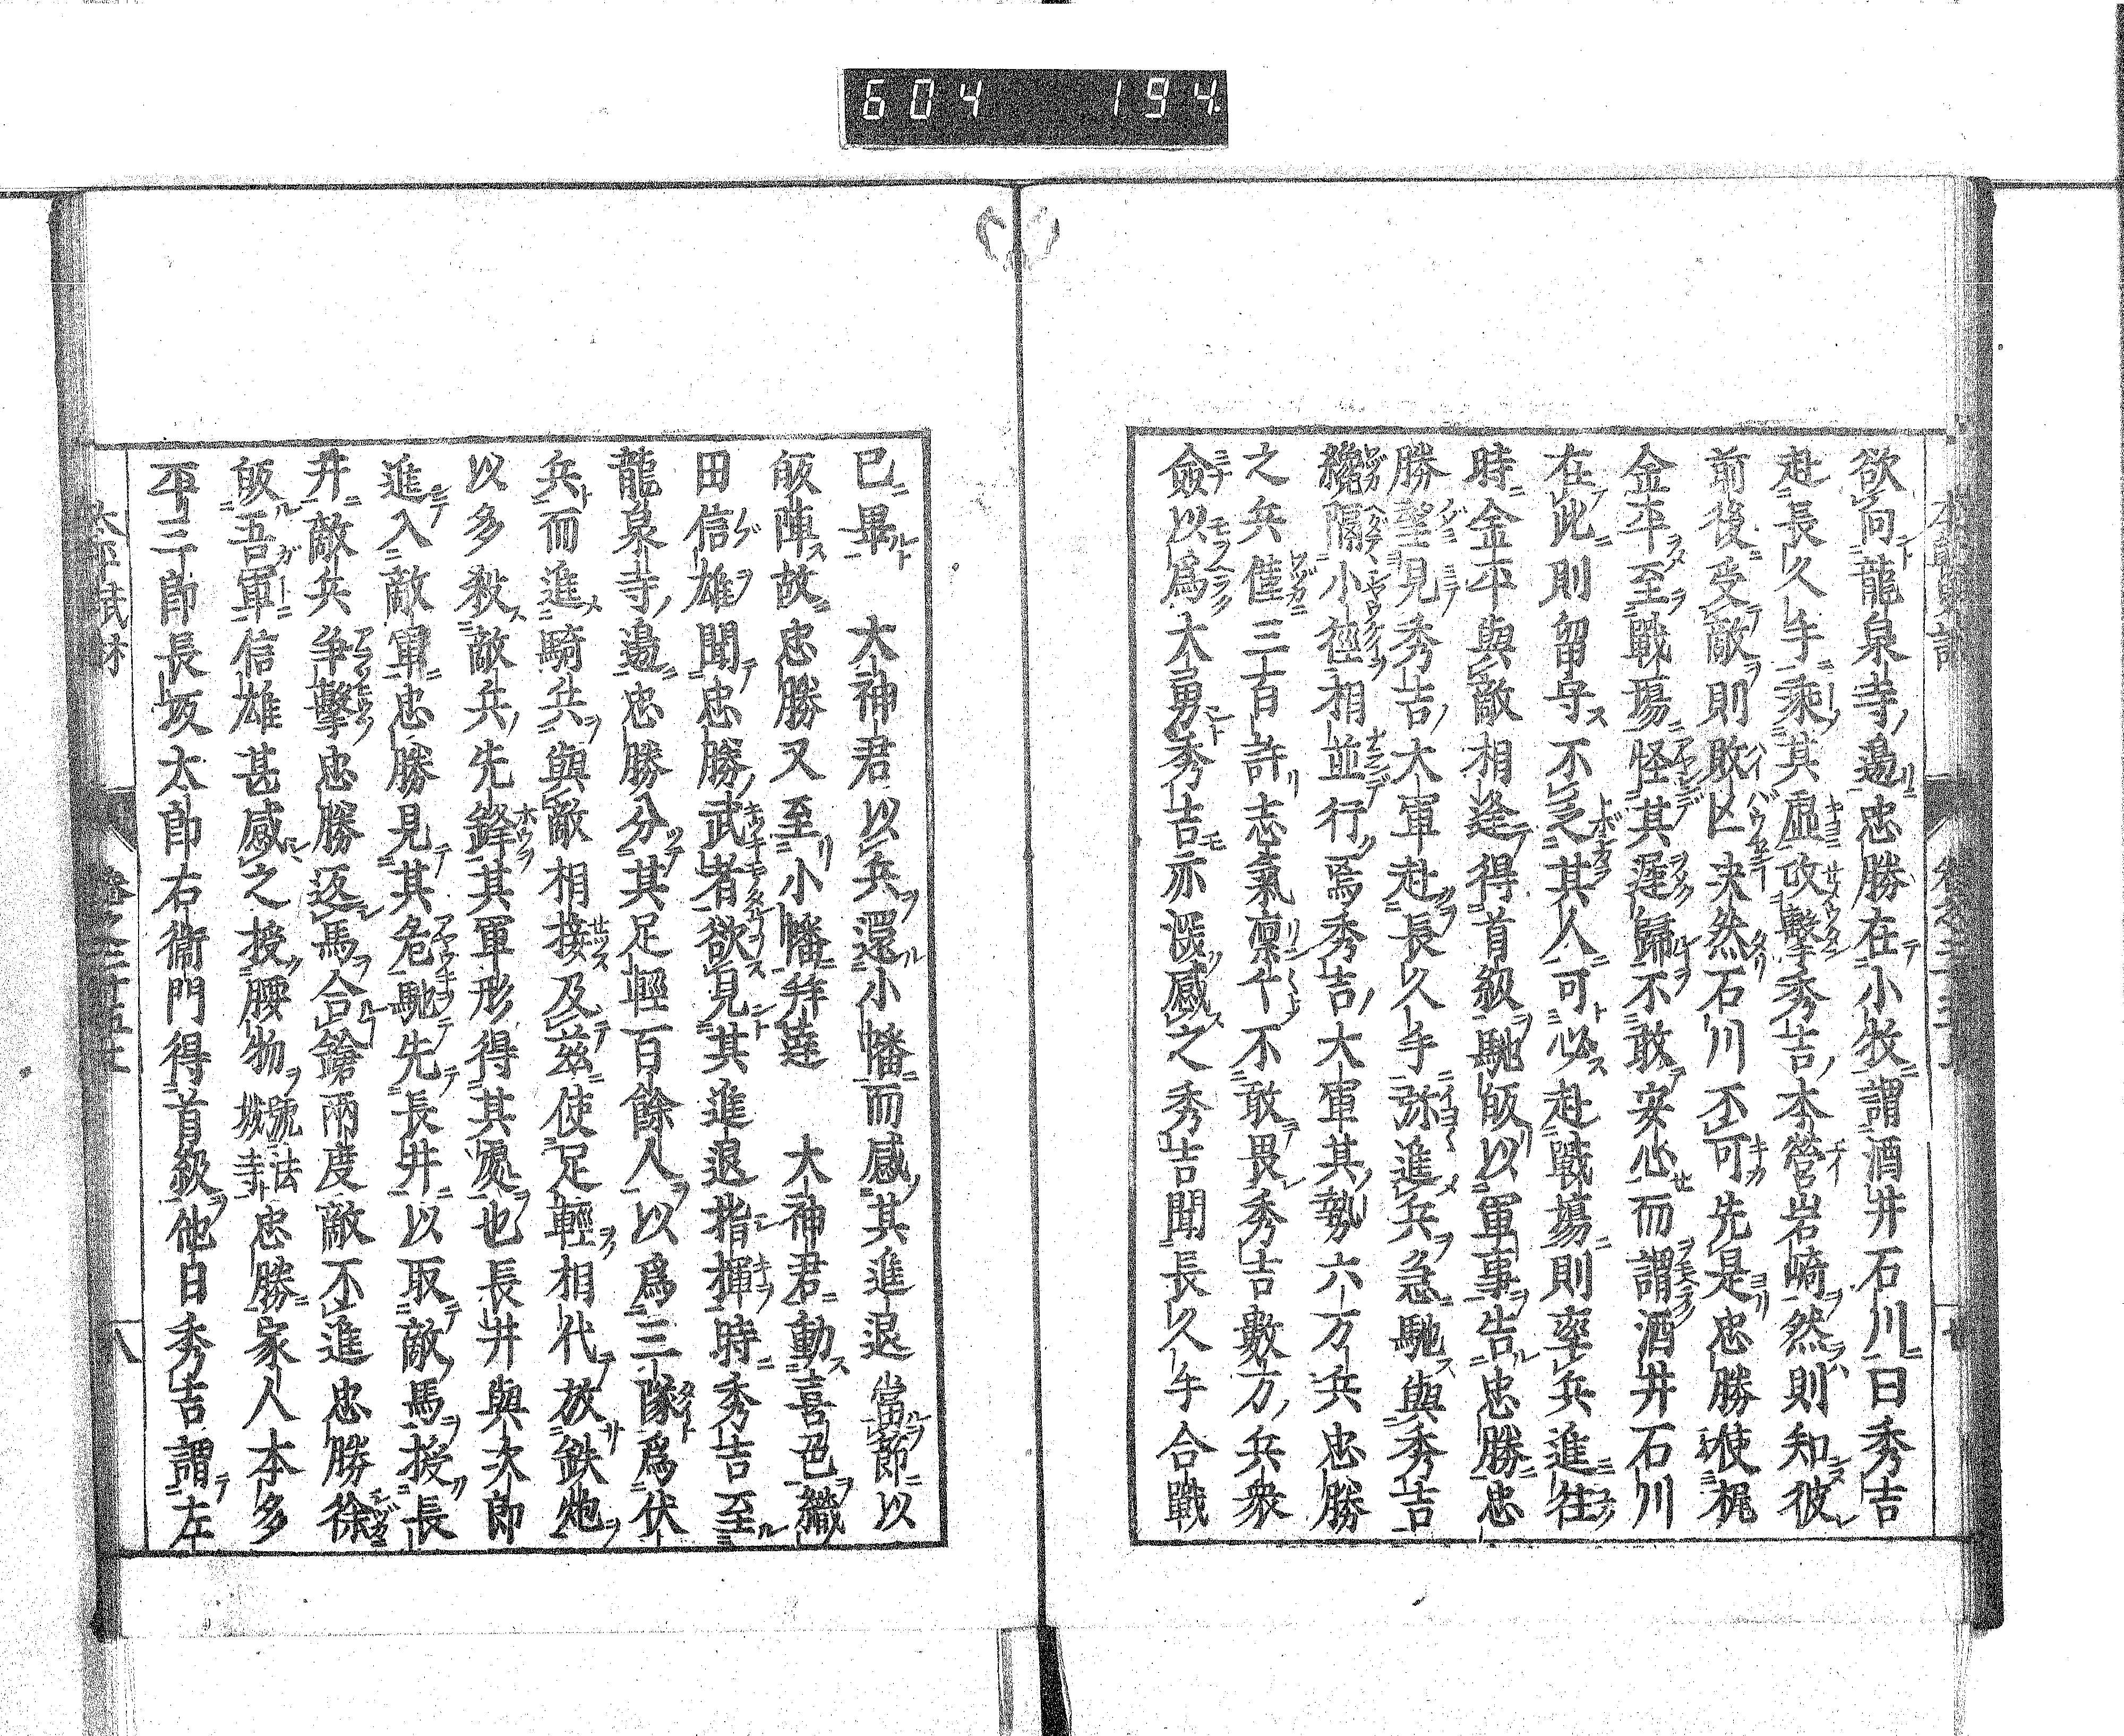 604 194
欲向龍泉寺邉忠勝在小牧謂酒井石川曰秀吉
赴長久手乘其虚攻撃秀吉本營岩崎然則知彼
前後受敵則敗凶决然石川不可先是忠勝使梶
金平至戰場怪其遲歸不敢安心而謂酒井石川
在此則留守不乏其人可必赴戰場則率兵進往
時金平與敵相逢得首級馳皈以軍事告忠勝忠
勝望見秀吉大軍赴長久手弥進兵急馳與秀吉
纔隔小徑相並行焉秀吉大軍其勢六万兵忠勝
之兵僅三百許志氣凛々不敢畏秀吉數万兵衆
僉以爲大勇秀吉亦深感之秀吉聞長久手合戰
已畢 大神君以兵還小幡而感其進退當節以
皈陣故忠勝又至小幡奔莚 大神君動喜色織
田信雄聞忠勝武者欲見其進退指揮時秀吉至
龍泉寺邉忠勝分其足輕百餘人以爲三隊爲伏
兵而進騎兵與敵相接及茲使足輕相代放鉄炮
以多殺敵兵先鋒其軍形得其處也長井與次郎
進入敵軍忠勝見其危馳先長井以取敵馬授長
井敵兵争撃忠勝返馬合鎗兩度敵不進忠勝徐
皈吾軍信雄甚感之授腰物號法城寺忠勝家人本多
平三郎長坂太郎右衞門得首級他日秀吉謂左
卷之三十五上
八